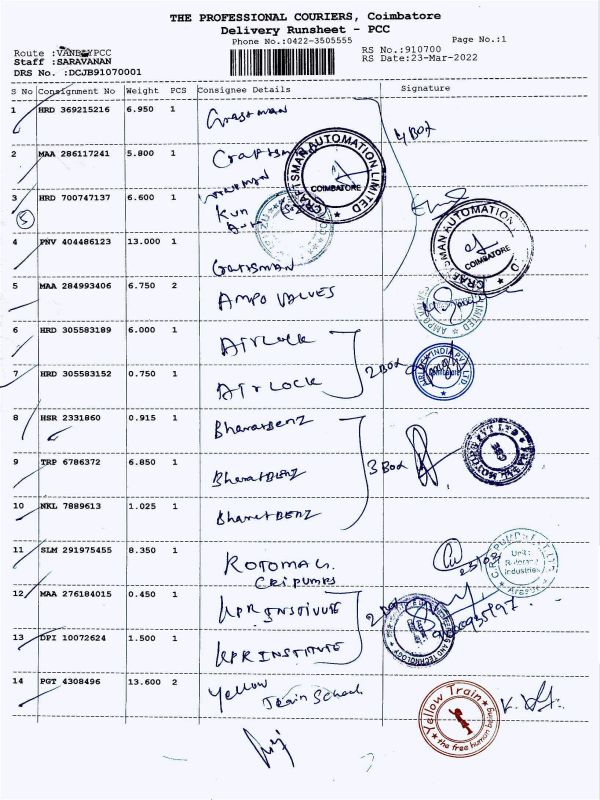 THE PROFESSIONAL COURIERS, Coimbatore
Delivery Runsheet - PCC
Phone No.:0422-3505555 Page No.:1
Route :VANBEYPCC RS No.:910700
Staff :SARAVANAN RS Date:23-Mar-2022
DRS No. :DCJB91070001
S No Consignment No Weight PCS Consignee Details Signature
1 HRD 369215216 6.950 1 Craftsman 4 BOX
2 MAA 286117241 5.800 1 Craftsman
CRAFTSMAN AUTOMATION LIMITED
COIMBATORE
3 HRD 700747137 6.600 1
5
4 PNV 404486123 13.000 1 Craftsman
CRAFTSMAN AUTOMATION
COIMBATORE
5 MAA 284993406 6.750 2 AMPO VALVES
6 HRD 305583189 6.000 1 AIRLOCK
7 HRD 305583152 0.750 1 AIRLOCK 2 BOX
8 HSR 2331860 0.915 1 BharatBENZ
9 TRP 6786372 6.850 1 BharatBENZ 3 BOX
10 NKL 7889613 1.025 1 BharatBENZ
11 SLM 291975455 8.350 1 ROTOMAG.
CRI PUMPS
23/03
Unit :
Industries
12 MAA 276184015 0.450 1 KPR INSTIVUTE
13 DPI 10072624 1.500 1 KPR INSTITUTE
14 PGT 4308496 13.600 2 Yellow
Train School
Yellow Train
the free human being